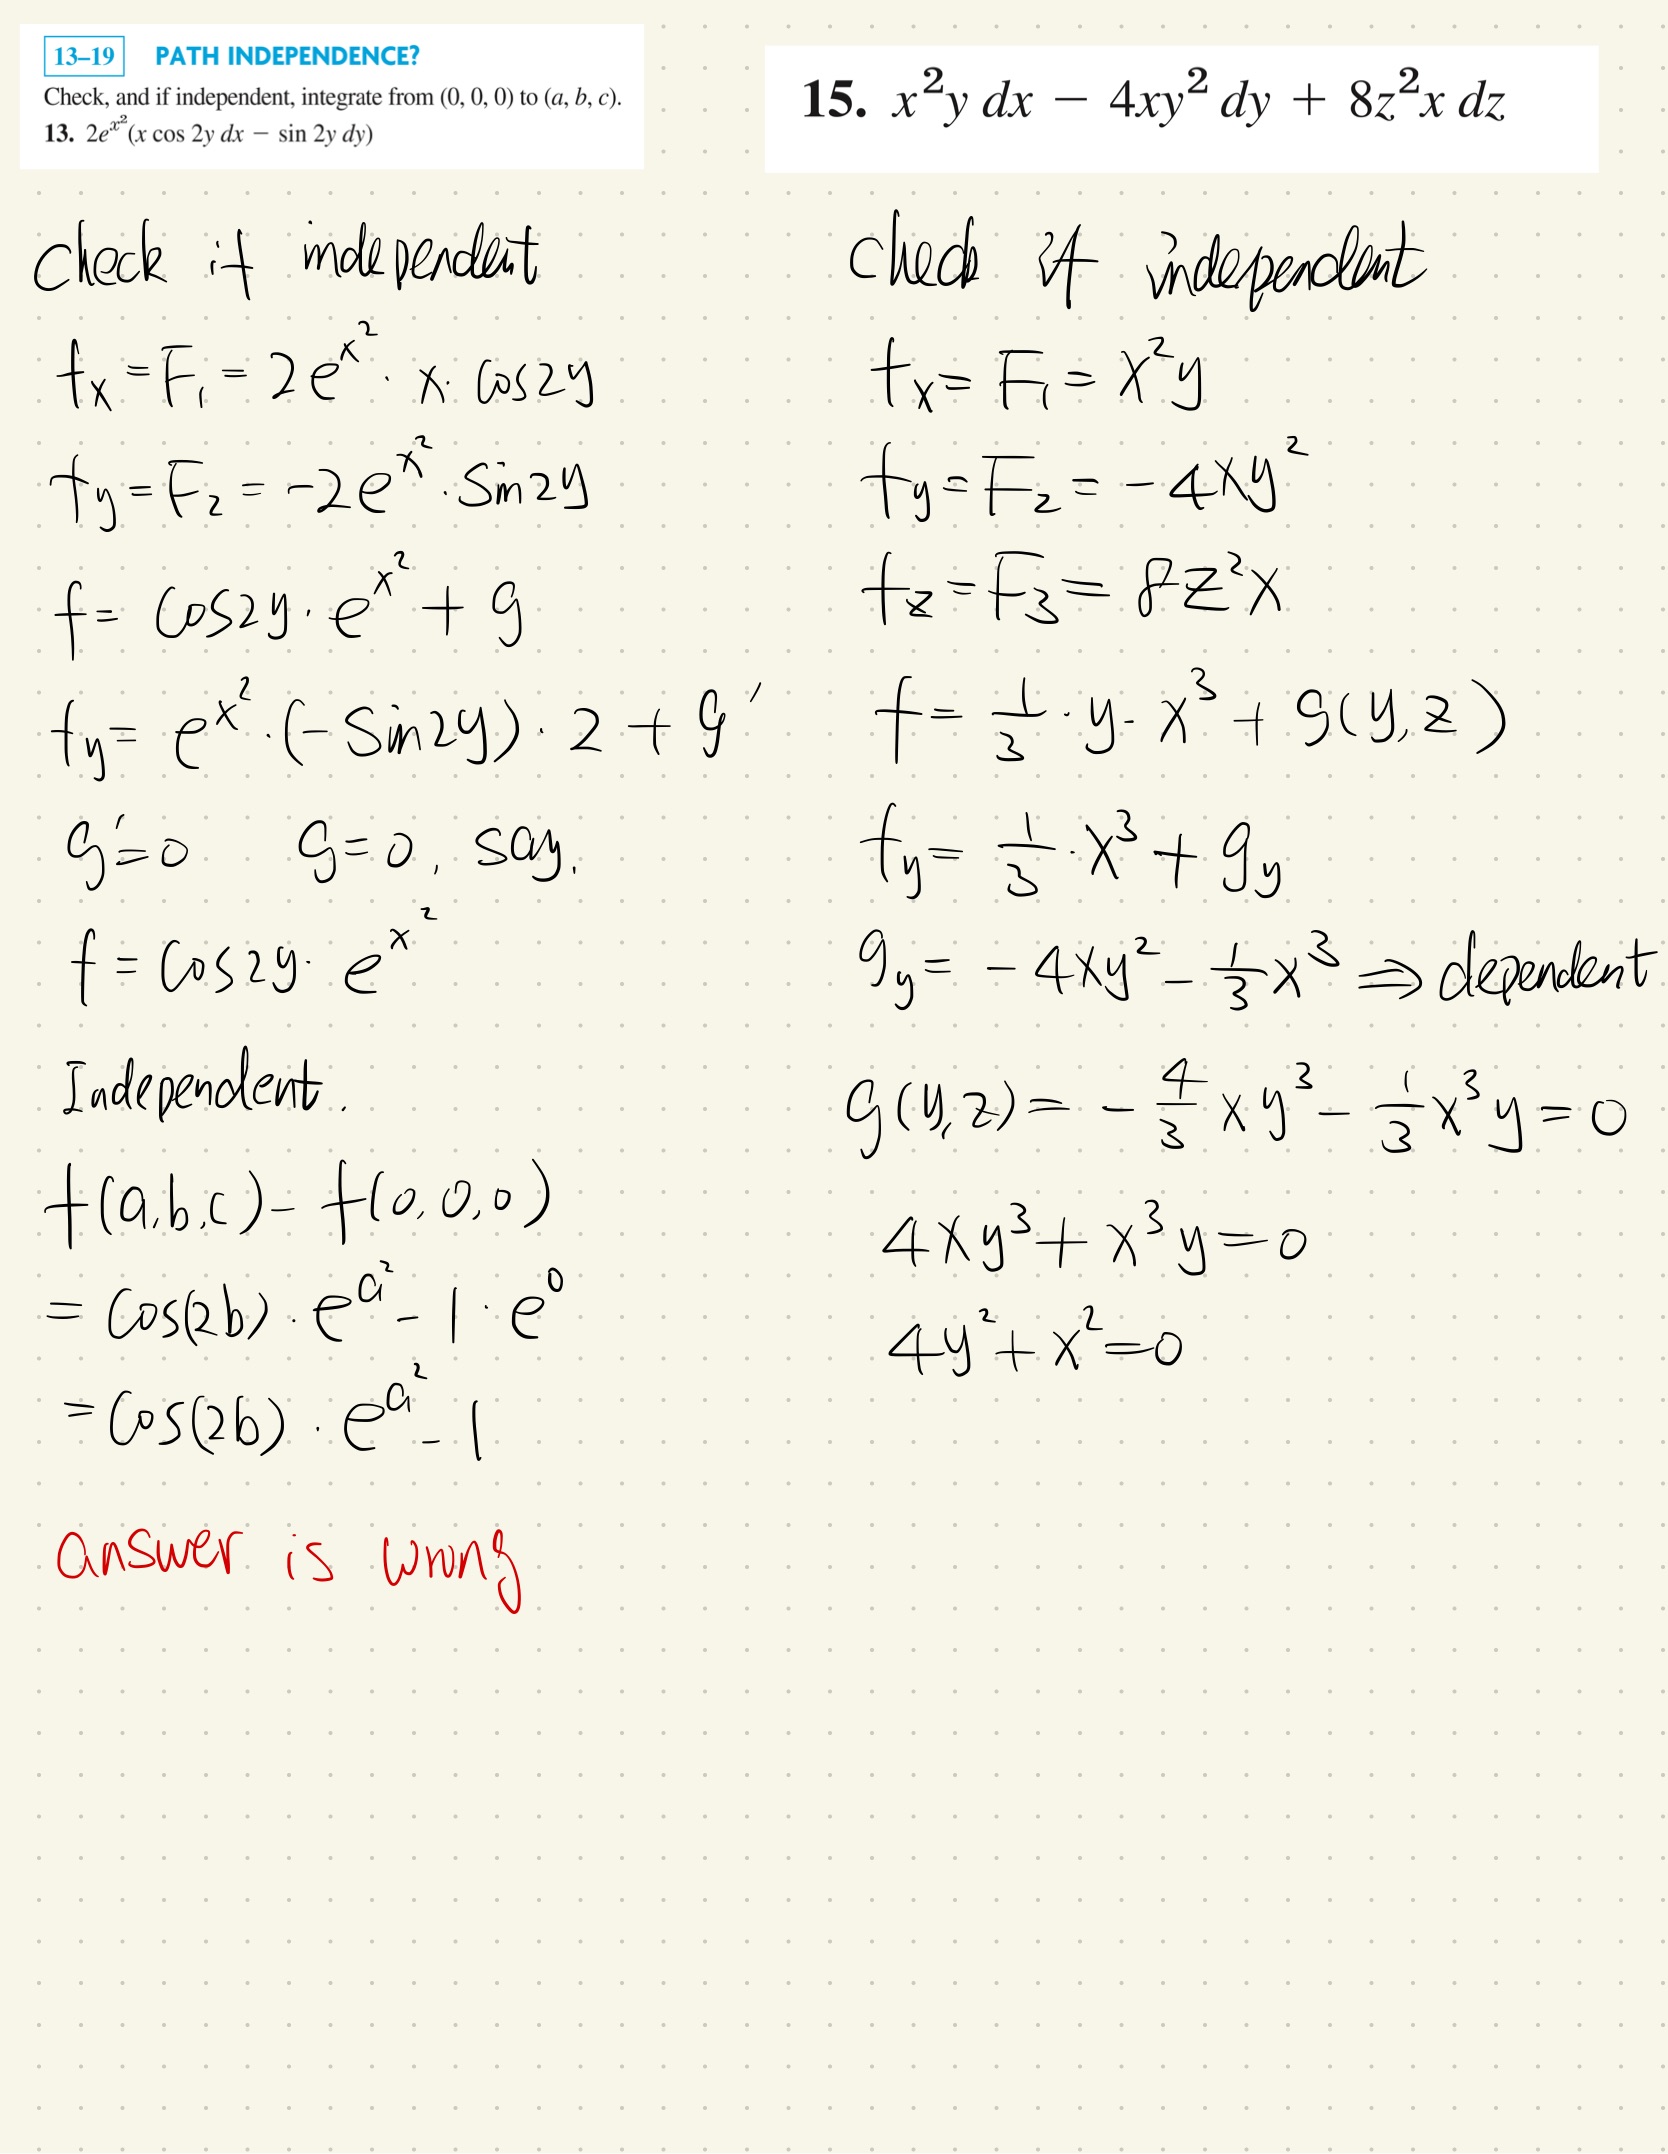 13–19 PATH INDEPENDENCE?
Check, and if independent, integrate from (0, 0, 0) to (a, b, c).
13. 2e^{x^2}(x cos 2y dx − sin 2y dy)
Check if independent
f_x = F_1 = 2e^{x^2} · x · cos2y
f_y = F_2 = -2e^{x^2} · sin2y
f = cos2y · e^{x^2} + g
f_y = e^{x^2} · (-sin2y) · 2 + g'
g' = 0 g = 0, say.
f = cos2y · e^{x^2}
Independent.
f(a,b,c) - f(0,0,0)
= cos(2b) · e^{a^2} - 1 · e^0
= cos(2b) · e^{a^2} - 1
answer is wrong
15. x^2y dx − 4xy^2 dy + 8z^2x dz
check if independent
f_x = F_1 = x^2y
f_y = F_2 = -4xy^2
f_z = F_3 = 8z^2x
f = \frac{1}{3} · y · x^3 + g(y,z)
f_y = \frac{1}{3} · x^3 + g_y
g_y = -4xy^2 - \frac{1}{3}x^3 ⇒ dependent
g(y,z) = -\frac{4}{3}xy^3 - \frac{1}{3}x^3y = 0
4xy^3 + x^3y = 0
4y^2 + x^2 = 0